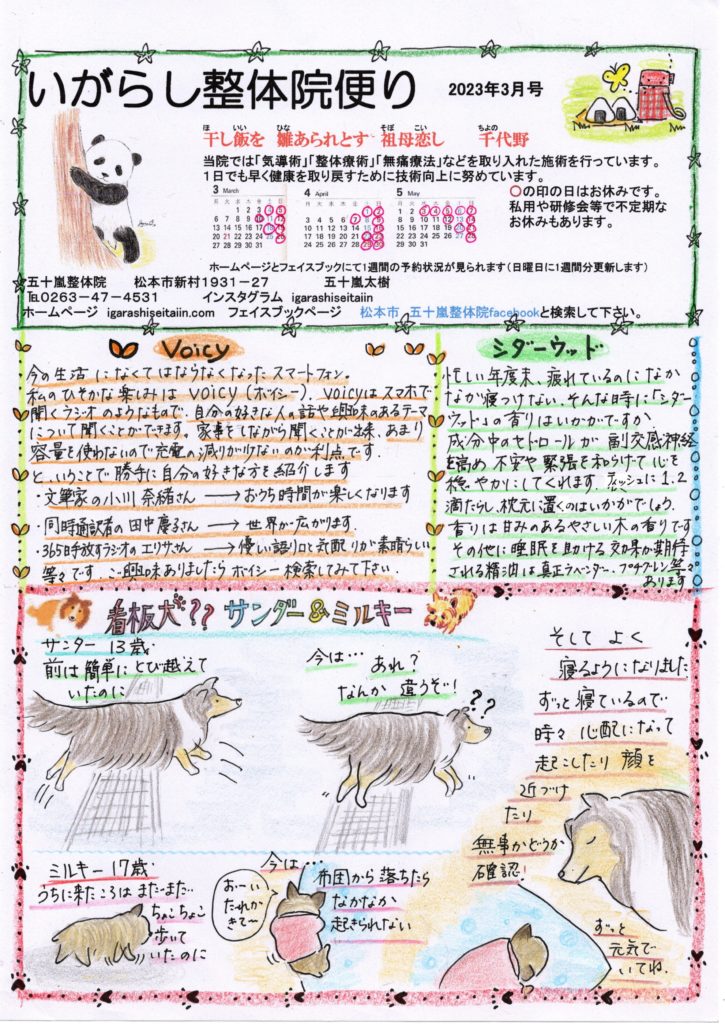 いがらし整体院便り 2023年3月号
干し飯を 雛あられとす 祖母恋し 千代野
当院では「気導術」「整体療術」「無痛療法」などを取り入れた施術を行っています。
1日でも早く健康を取り戻すために技術向上に努めています。
3 March
4 April
5 May
○の印の日はお休みです。
私用や研修会等で不定期な
お休みもあります。
ホームページとフェイスブックにて1週間の予約状況が見られます(日曜日に1週間分更新します)
五十嵐整体院 松本市新村1931-27 五十嵐太樹
℡0263-47-4531 インスタグラム igarashiseitaiin
ホームページ igarashiseitaiin.com フェイスブックページ 松本市 五十嵐整体院facebookと検索して下さい。
Voicy
今の生活になくてはならなくなったスマートフォン。
私のひそかな楽しみは voicy(ボイシー)。voicyはスマホで
聞くラジオのようなもので、自分の好きな人の話や興味のあるテーマ
について聞くことができます。家事をしながら聞くことが出来、あまり
容量を使わないので充電の減りが少ないのが利点です。
と、いうことで勝手に自分の好きな方を紹介します
・文筆家の小川奈緒さん → おうち時間が楽しくなります
・同時通訳者の田中慶子さん → 世界が広がります。
・365日手放すラジオのエリサさん → 優しい語り口と気配りが素晴らしい
等々です。ご興味ありましたらボイシー検索してみて下さい。
シダーウッド
忙しい年度末、疲れているのになか
なか寝つけない、そんな時に「シダー
ウッド」の香りはいかがですか
成分中のセドロールが副交感神経
を高め、不安や緊張を和らげて心を
穏やかにしてくれます。ティッシュに1.2
滴たらし、枕元に置くのはいかがでしょう。
香りは甘みのあるやさしい木の香りです
その他に睡眠を助ける効果が期待
される精油は真正ラベンダー、プチグレン等々
あります
看板犬?? サンダー&ミルキー
サンダー 13歳・
前は簡単にとび越えて
いたのに
今は…
あれ?
なんか違うぞ・!
??
そして よく
寝るようになりました
ずっと寝ているので
時々 心配になって
起こしたり 顔を
近づけ
たり
無事かどうか
確認!
ミルキー 17歳・
うちに来たころは まだまだ…
ちょこちょこ
歩いて
いたのに
今は…
おーい
だれか
きて~
布団から落ちたら
なかなか
起きられない
ずっと
元気で
いてね.